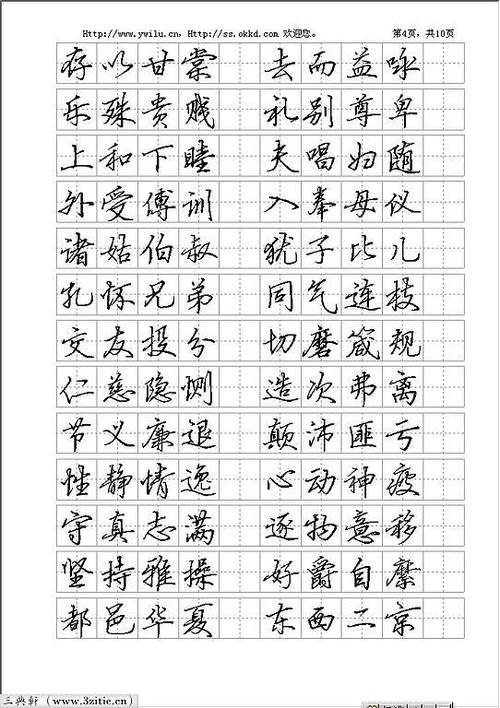 Http://www.ywilu.cn，Http://ss.okkd.com 欢迎您。 第4页，共10页
存以甘棠 去而益咏
乐殊贵贱 礼别尊卑
上和下睦 夫唱妇随
外受傅训 入奉母仪
诸姑伯叔 犹子比儿
孔怀兄弟 同气连枝
交友投分 切磨箴规
仁慈隐恻 造次弗离
节义廉退 颠沛匪亏
性静情逸 心动神疲
守真志满 逐物意移
坚持雅操 好爵自縻
都邑华夏 东西二京
三典轩（www.3zitic.cn）